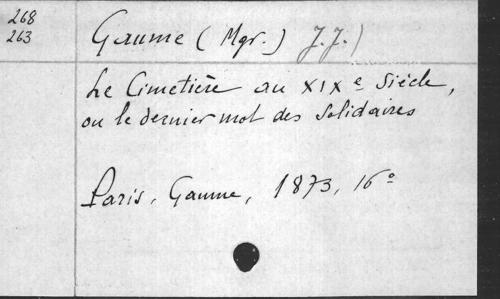 268
263
Gaume (Mgr.) J. J.)
Le Cimetière au XIXe Siécle,
ou le dernier mot des Solidaires
Paris, Gaume, 1873, 16°